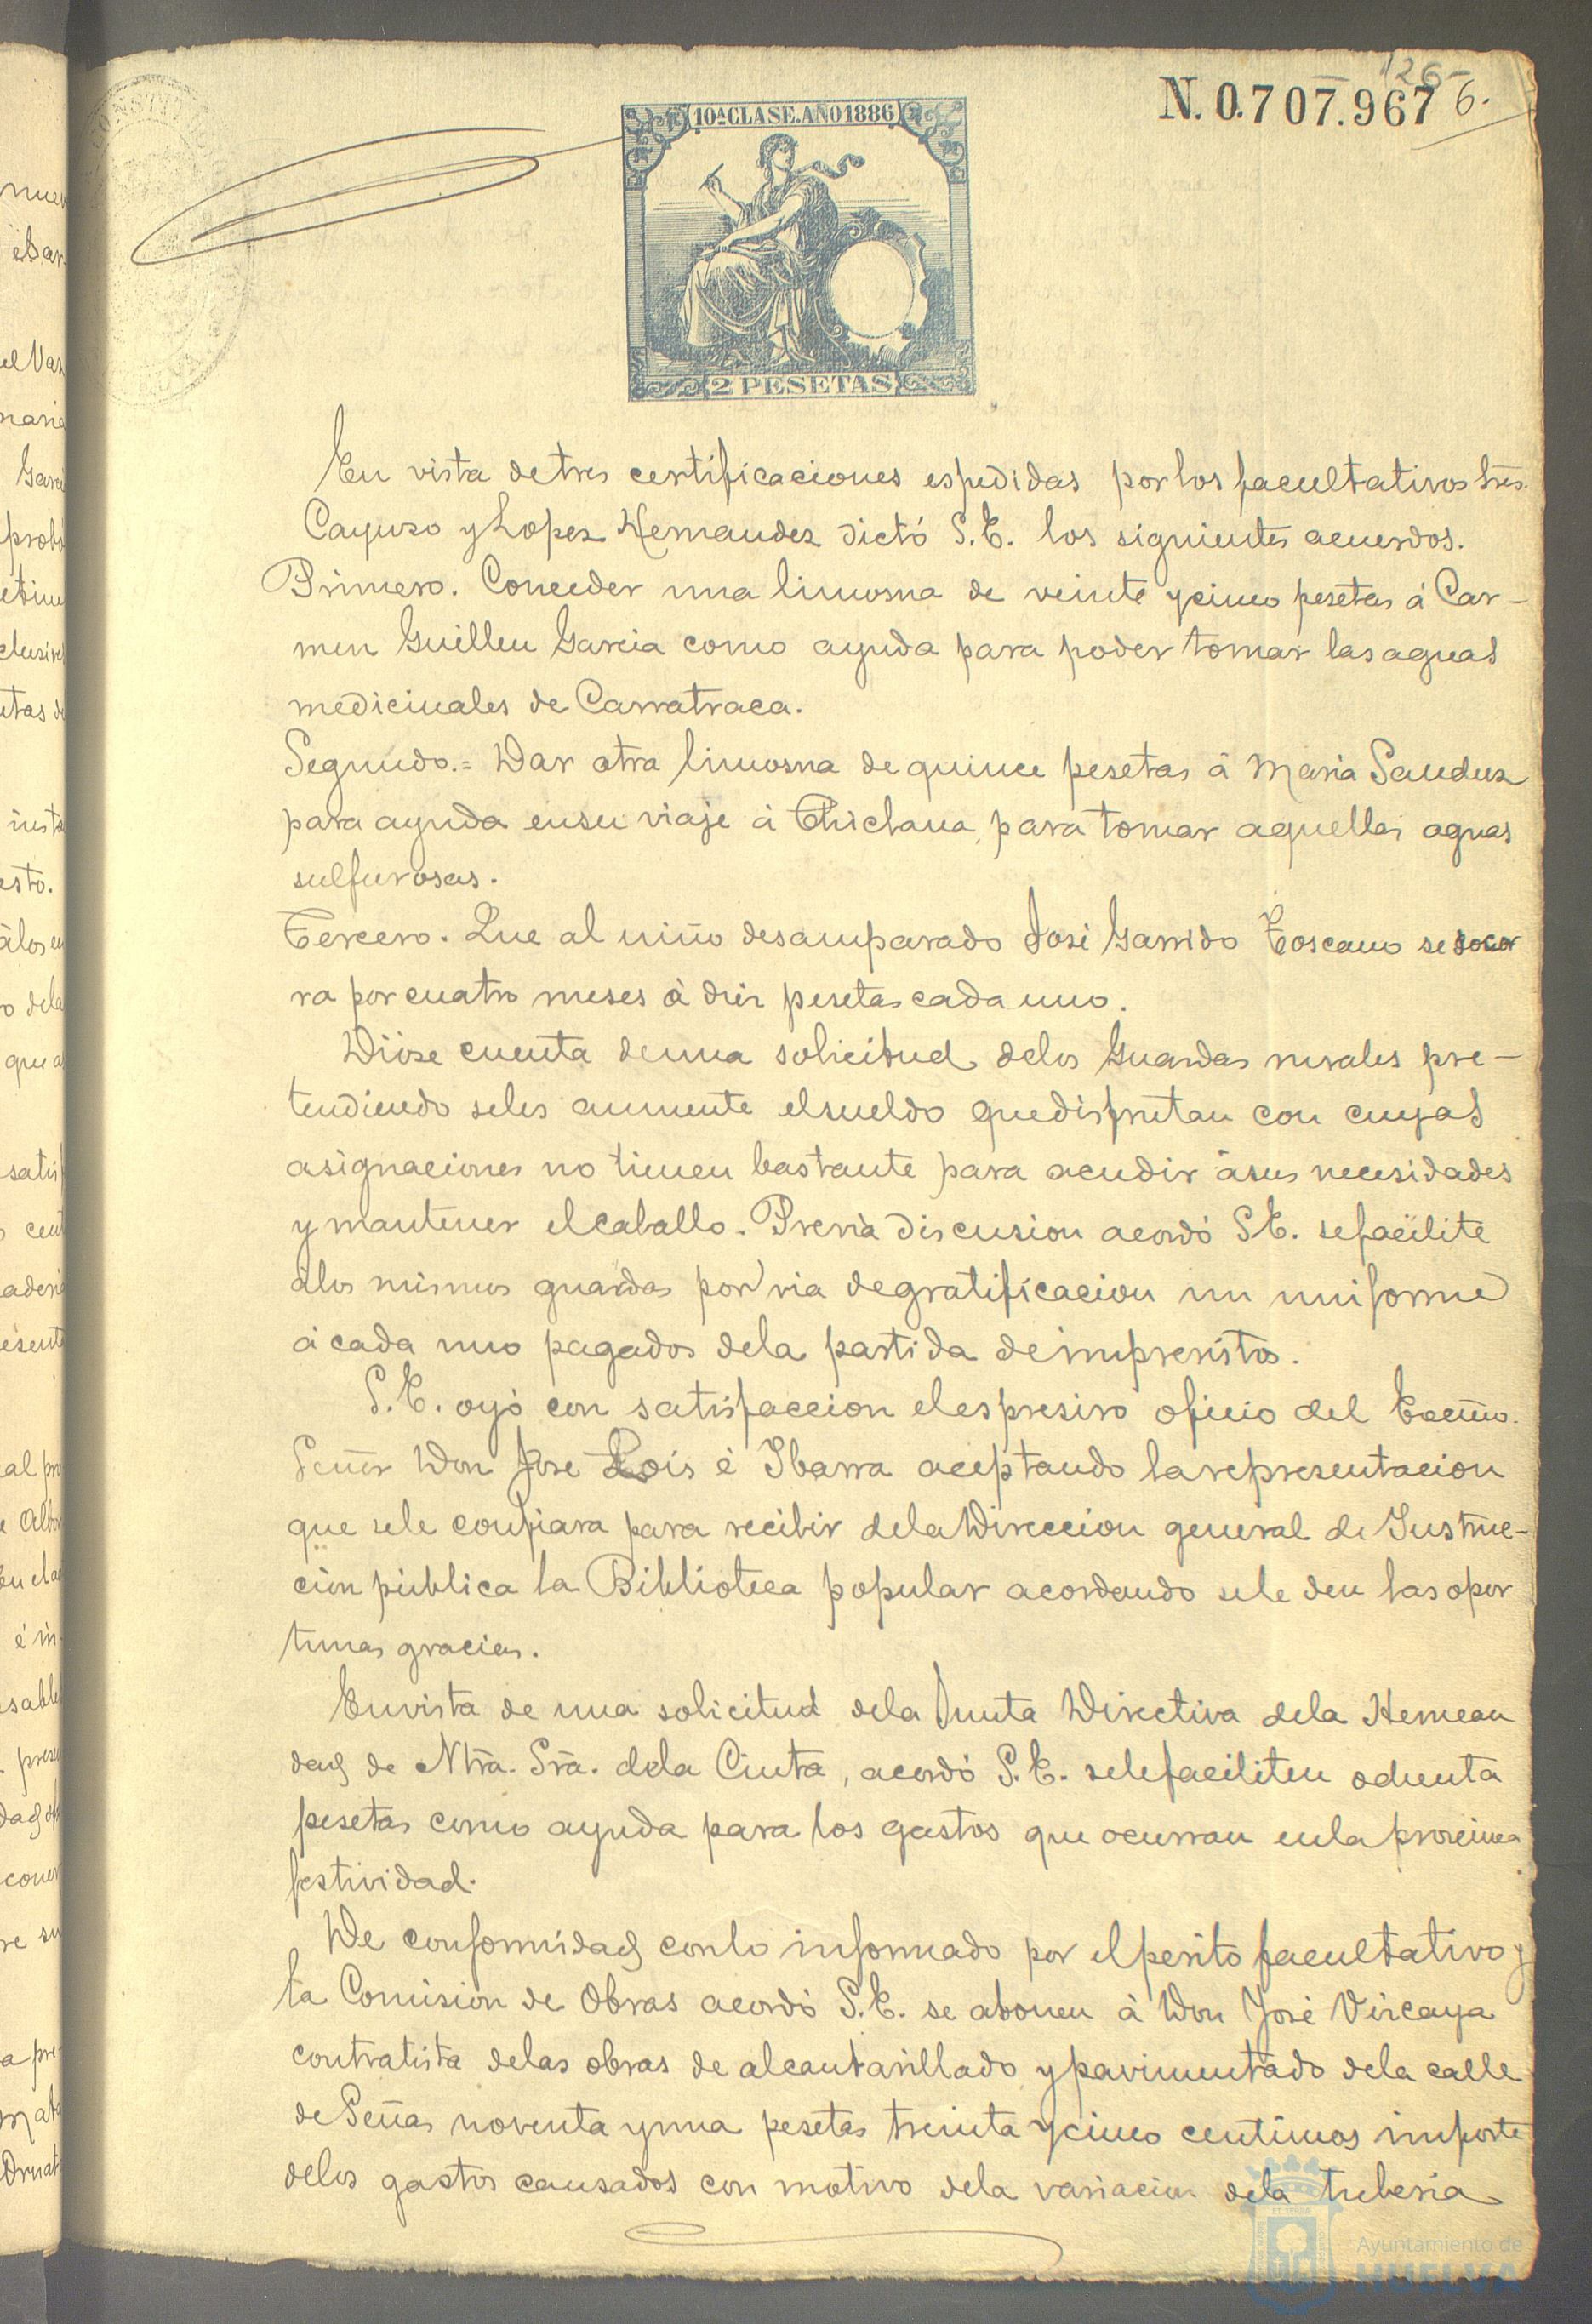 126
N. 0.707.967 6.
10ª CLASE. AÑO 1886
2 PESETAS
En vista de tres certificaciones espedidas por los facultativos Sres.
Cayuso y Lopez Hernandez dictó S.E. los siguientes acuerdos.
Primero. Conceder una limosna de veinte y cinco pesetas á Car-
men Guillen Garcia como ayuda para poder tomar las aguas
medicinales de Carratraca.
Segundo.= Dar otra limosna de quince pesetas á Maria Sanchez
para ayuda en su viaje á Chiclana, para tomar aquellas aguas
sulfurosas.
Tercero. Que al niño desamparado José Garrido Toscano se socor
ra por cuatro meses á diez pesetas cada uno.
Dióse cuenta de una solicitud de los Guardas rurales pre-
tendiendo se les aumente el sueldo que disfrutan con cuyas
asignaciones no tienen bastante para acudir á sus necesidades
y mantener el caballo. Previa discusion acordó S.E. se facilite
á los mismos guardas por via de gratificacion un uniforme
á cada uno pagados de la partida de imprevistos.
S.E. oyó con satisfaccion el espresivo oficio del Excmo.
Señor Don José Lois é Ibarra aceptando la representacion
que se le confiara para recibir de la Direccion general de Instruc-
cion pública la Biblioteca popular acordando se le den las opor
tunas gracias.
En vista de una solicitud de la Junta Directiva de la Herman
dad de Ntra. Sra. de la Cinta, acordó S.E. se le faciliten ochenta
pesetas como ayuda para los gastos que ocurran en la procsima
festividad.
De conformidad con lo informado por el perito facultativo y
la Comision de Obras acordó S.E. se abonen á Don José Vizcaya
contratista de las obras de alcantarillado y pavimentado de la calle
de Señas noventa y una pesetas treinta y cinco centimos importe
de los gastos causados con motivo de la variacion de la tuberia
Ayuntamiento de
HUELVA